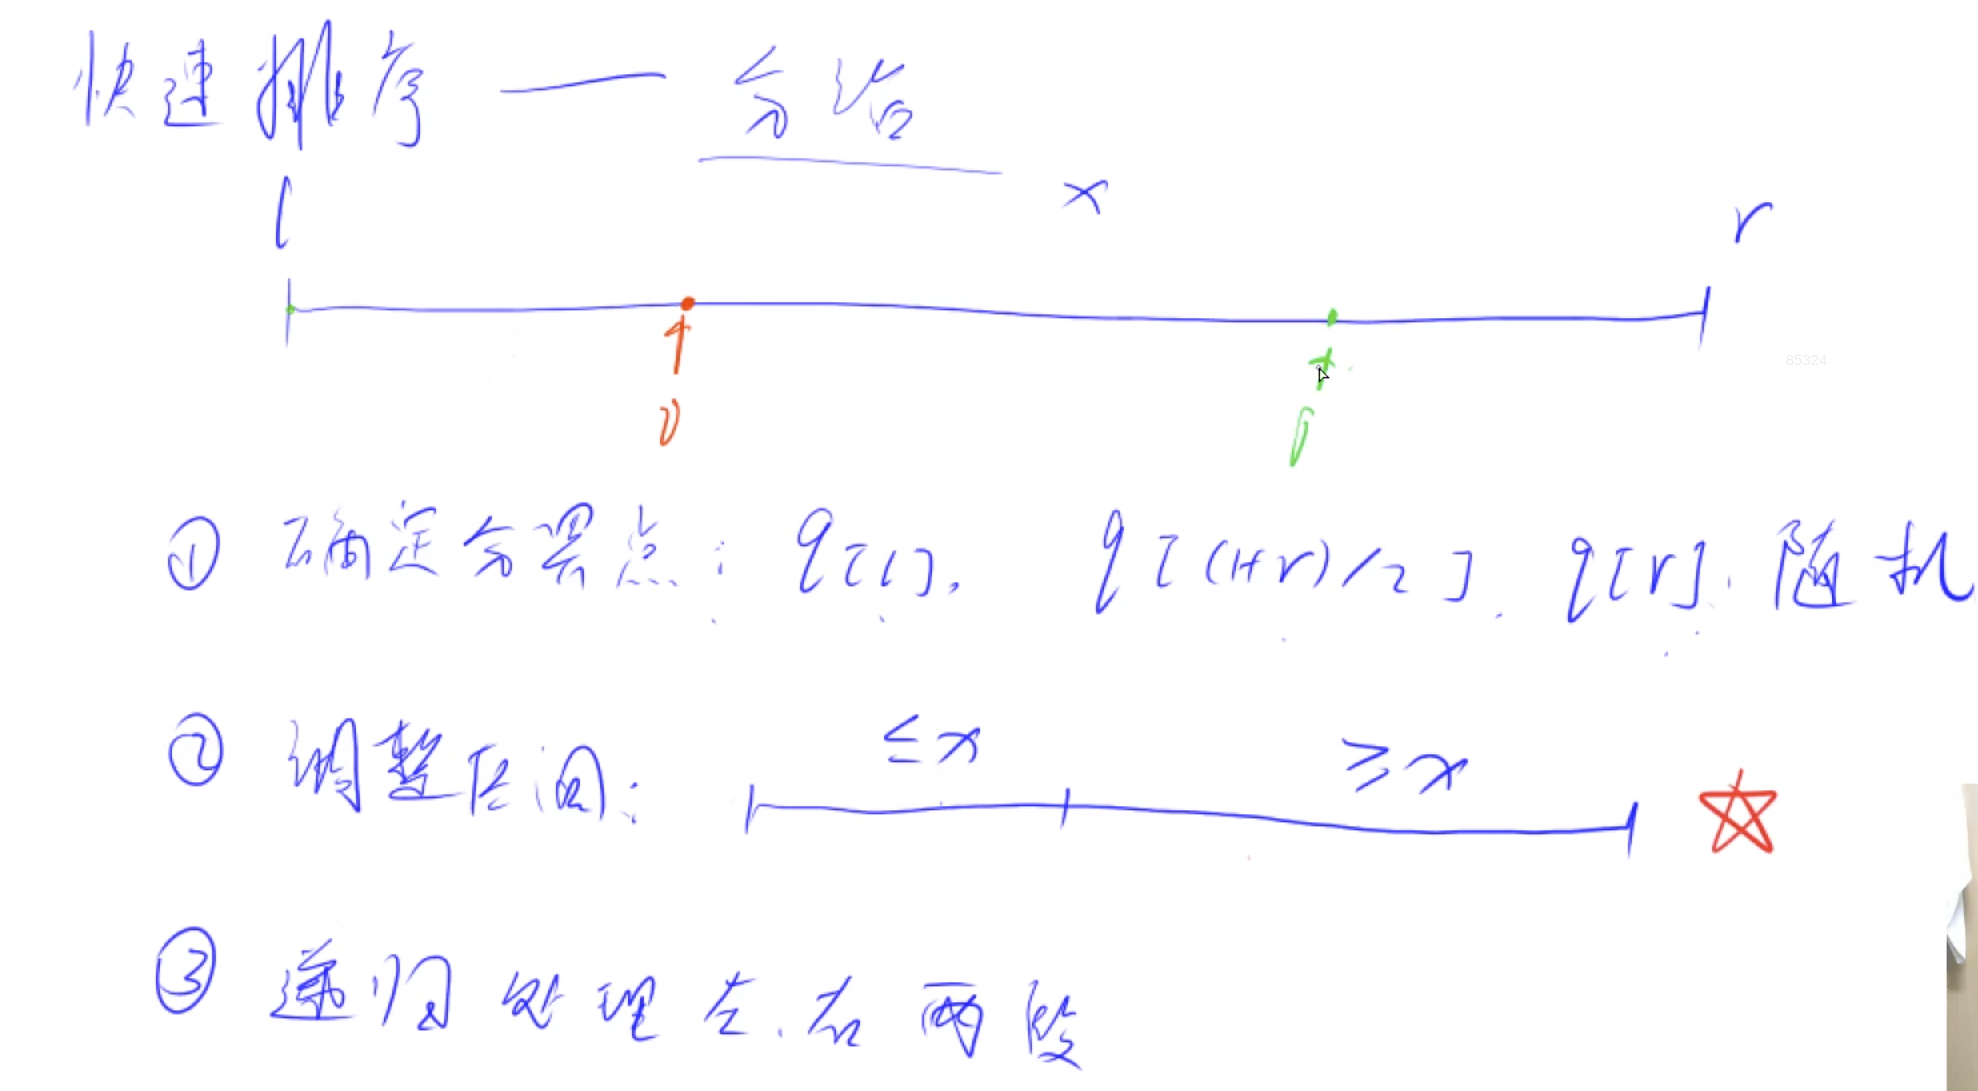 快速排序 —— 分治
x
l
r
85324
① 确定分界点: q[l], q[(l+r)/2], q[r], 随机
② 调整区间: ≤x ≥x
③ 递归处理左、右两段